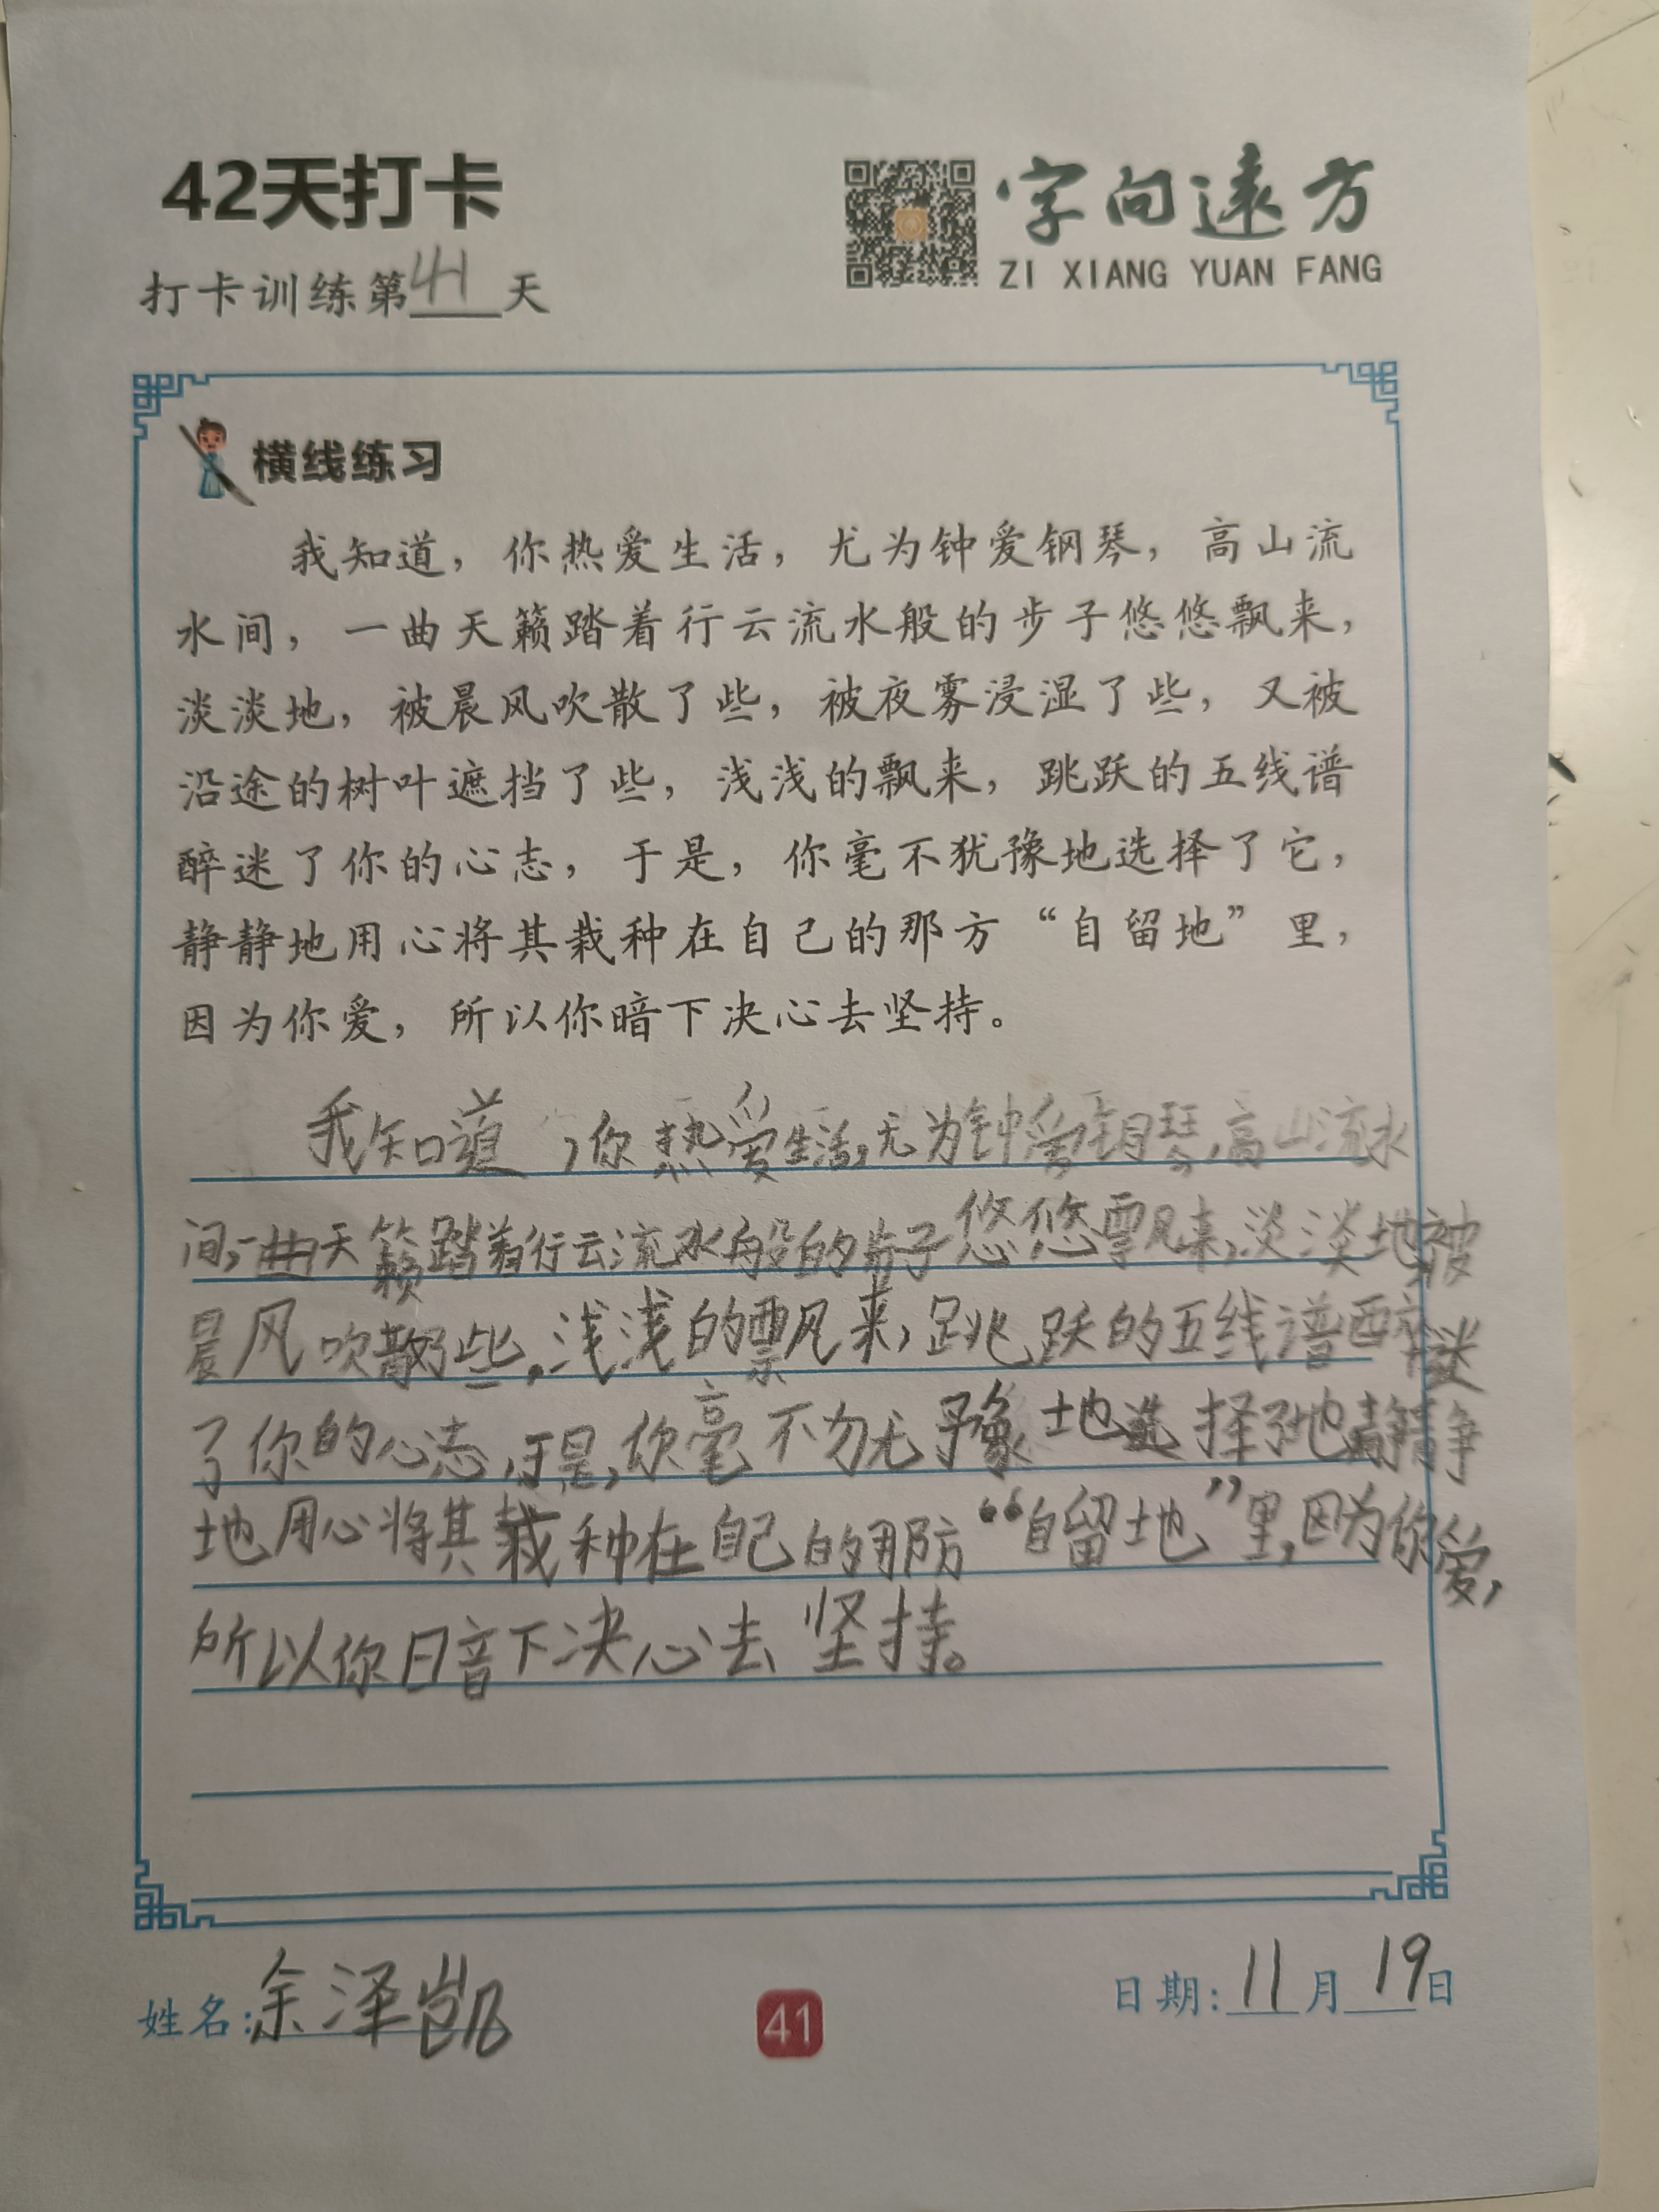 42天打卡
字向遠方
ZI XIANG YUAN FANG
打卡训练第41天
横线练习
我知道，你热爱生活，尤为钟爱钢琴，高山流
水间，一曲天籁踏着行云流水般的步子悠悠飘来，
淡淡地，被晨风吹散了些，被夜雾浸湿了些，又被
沿途的树叶遮挡了些，浅浅的飘来，跳跃的五线谱
醉迷了你的心志，于是，你毫不犹豫地选择了它，
静静地用心将其栽种在自己的那方“自留地”里，
因为你爱，所以你暗下决心去坚持。
我知道，你热爱生活，尤为钟爱钢琴，高山流水
间，一曲天籁踏着行云流水般的步子悠悠飘来，淡淡地被
晨风吹散了些，浅浅的飘来，跳跃的五线谱醉迷
了你的心志，于是，你毫不犹豫地选择了地静静
地用心将其栽种在自己的那防“自留地”里，因为你爱，
所以你暗下决心去坚持。
姓名：余泽凯
41
日期：11月19日